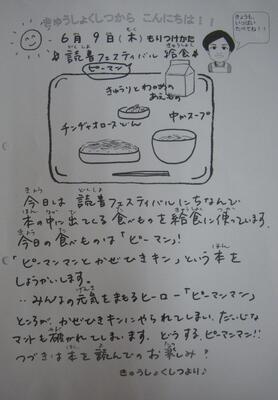 きゅうしょくしつから こんにちは!!
きょうも、
いっぱい
たべてね!!
6月 9日(木)もりつけかた
もく
☆読書フェスティバル 給食☆
どくしょ
きゅうしょく
ピーマン
きゅうりとわかめの
あえもの
チンヂャオロースどん
中かスープ
きょう
どくしょ
今日は 読書フェスティバルにちなんで
ほん なか で た きゅうしょく つか
本の中に出てくる食べものを給食に使っています。
きょう た
今日の食べものは「ピーマン」!
ほん
「ピーマンマンとかぜひきキン」という本を
しょうかいします。
げんき
‥みんなの元気をまもるヒーロー「ピーマンマン」
ところが、かぜひきキンにやられてしまい、だいじな
やぶ
マントも破かれてしまいます。どうする、ピーマンマン!!
ほん よ たの
つづきは本を読んでのお楽しみ?
きゅうしょくしつより♪